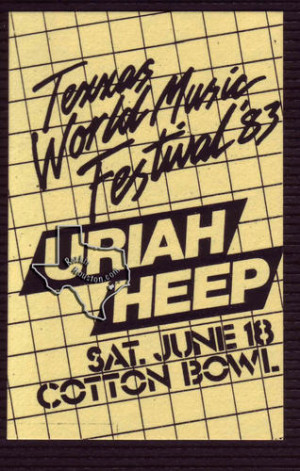 Texxas
World Music
Festival '83
URIAH
HEEP
SAT. JUNE 18
COTTON BOWL